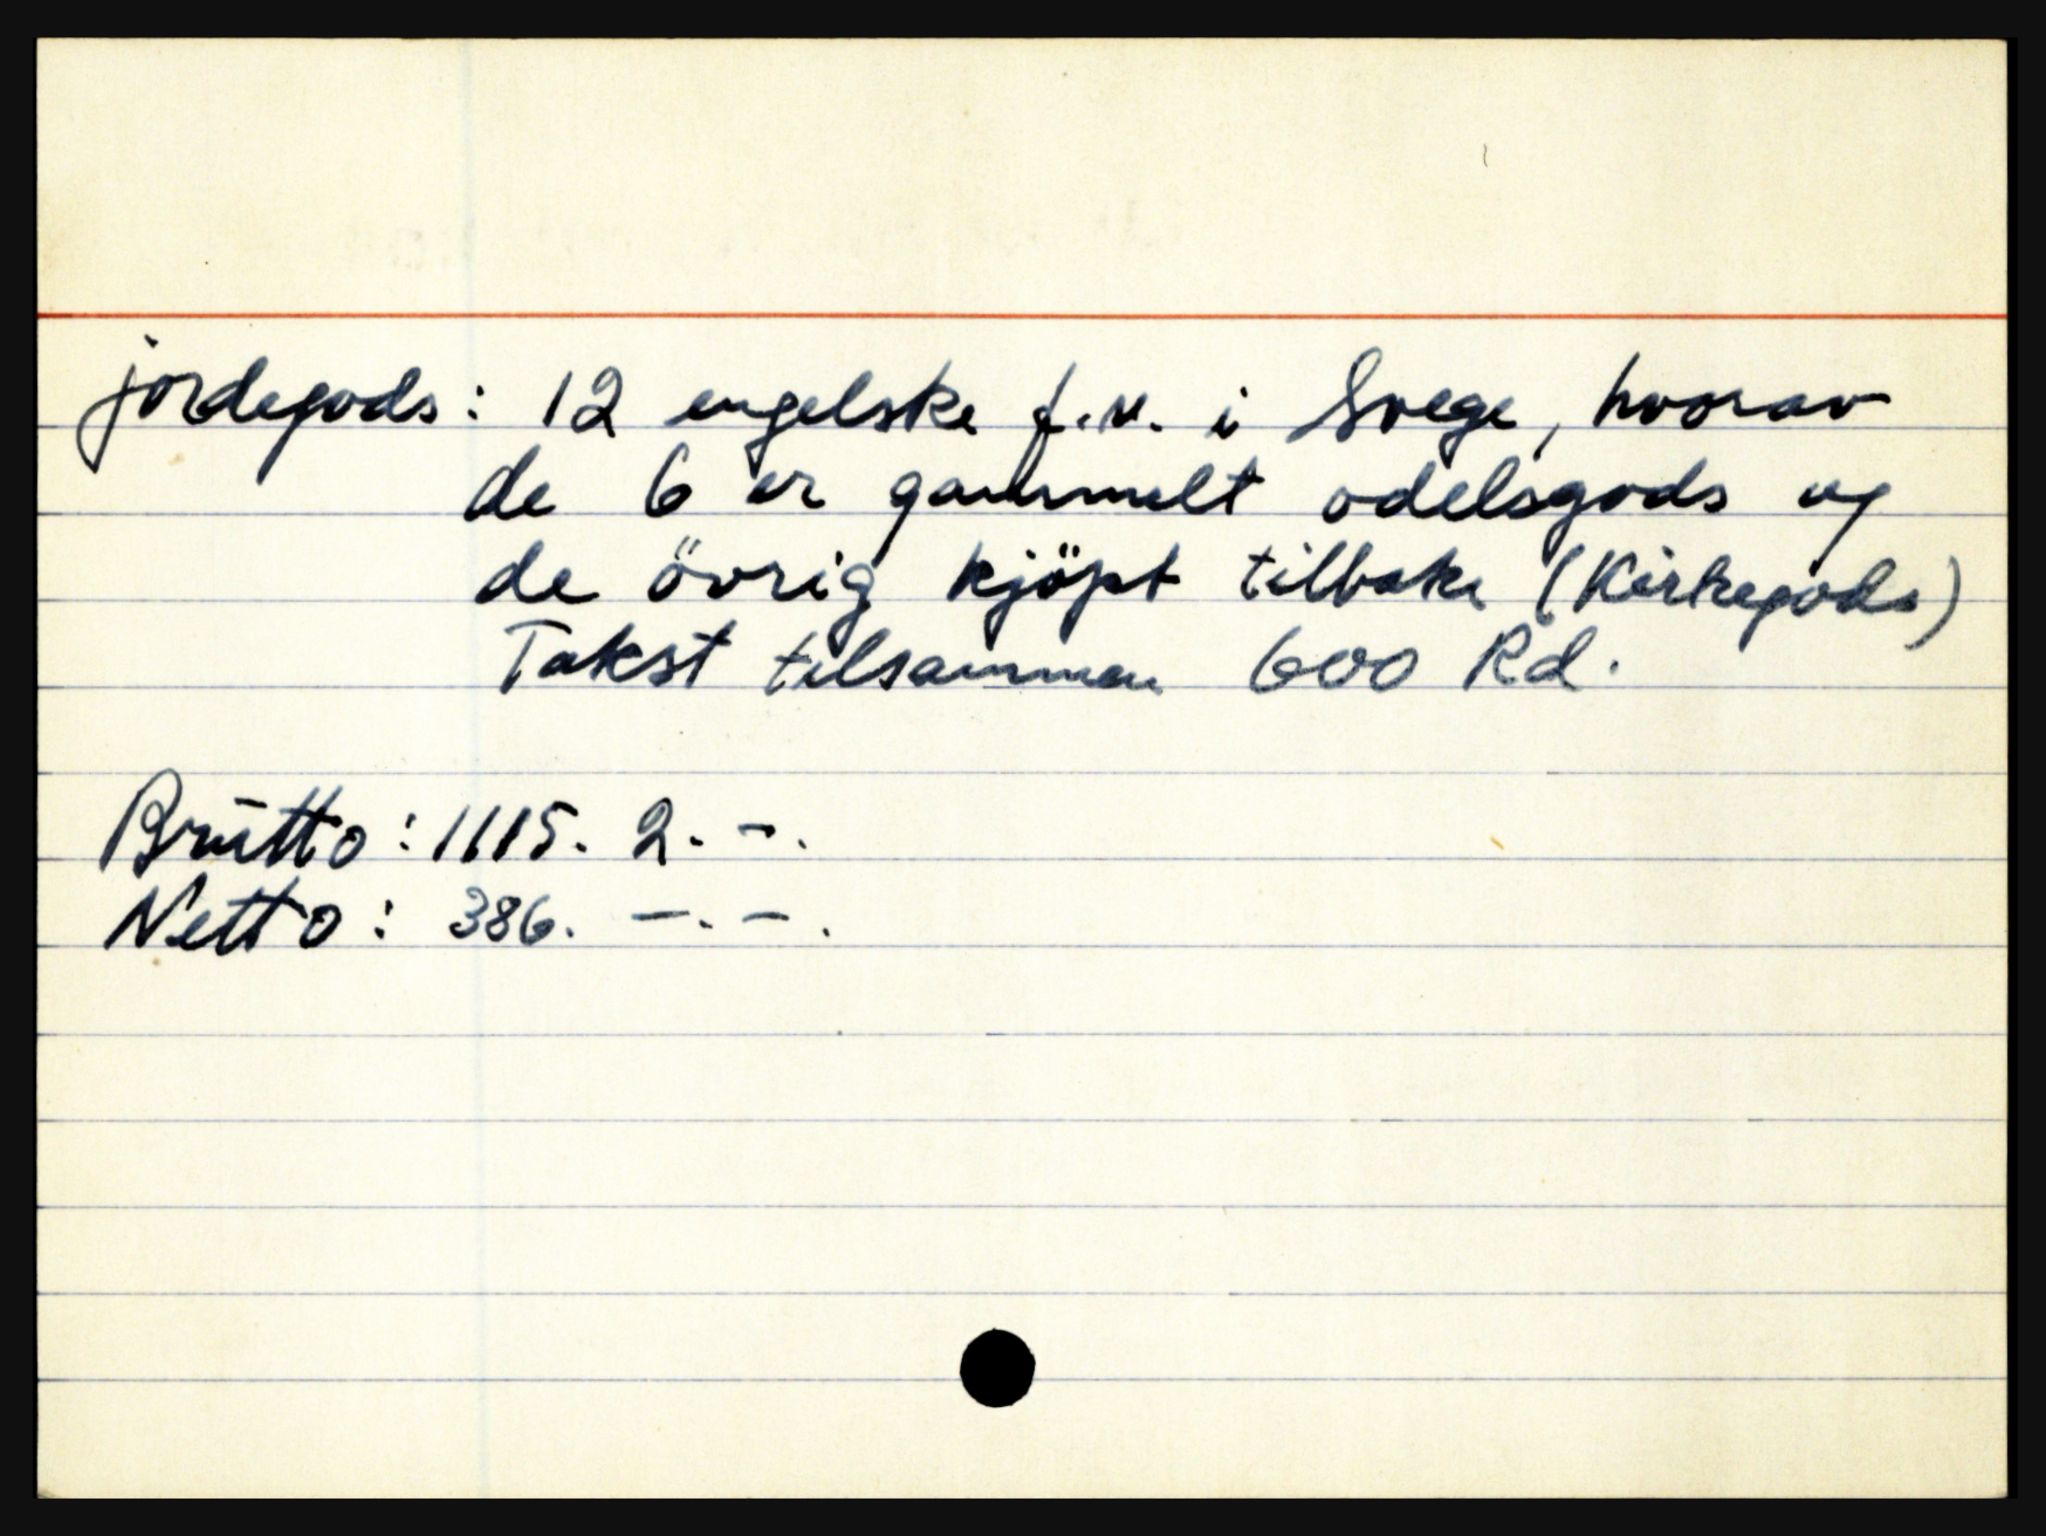 jordegods: 12 engelske f.v. i Svege, hvorav
de 6 er gammelt odelsgods og
de övrig kjöpt tilbake (Kirkegods)
Takst tilsammen 600 Rd.
Brutto: 1115. 2. -.
Netto: 386. -. -.